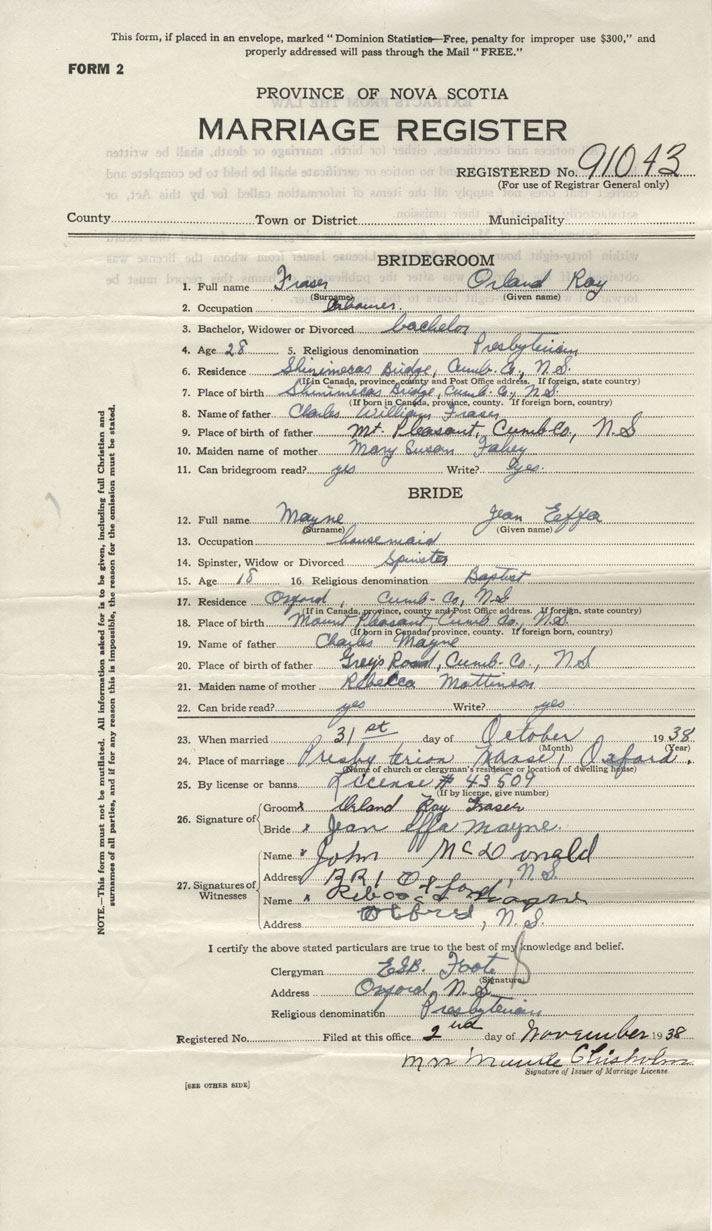 This form, if placed in an envelope, marked "Dominion Statistics—Free, penalty for improper use $300," and
properly addressed will pass through the Mail "FREE."
FORM 2
PROVINCE OF NOVA SCOTIA
MARRIAGE REGISTER
REGISTERED No. 91043
(For use of Registrar General only)
County Town or District Municipality
BRIDEGROOM
1. Full name Fraser Orland Ray
(Surname) (Given name)
2. Occupation Labourer
3. Bachelor, Widower or Divorced bachelor
4. Age 28 5. Religious denomination Presbyterian
6. Residence Shinimecas Bridge, Cumb. Co., N.S.
(If in Canada, province, county and Post Office address. If foreign, state country)
7. Place of birth Shinimecas Bridge, Cumb. Co., N.S.
(If born in Canada, province, county. If foreign born, country)
8. Name of father Charles William Fraser
9. Place of birth of father Mt. Pleasant, Cumb Co., N.S
10. Maiden name of mother Mary Susan Fahey
11. Can bridegroom read? yes Write? yes
BRIDE
12. Full name Mayne Jean Effa
(Surname) (Given name)
13. Occupation housemaid
14. Spinster, Widow or Divorced Spinster
15. Age 18 16. Religious denomination Baptist
17. Residence Oxford, Cumb. Co., N.S
(If in Canada, province, county and Post Office address. If foreign, state country)
18. Place of birth Mount Pleasant, Cumb Co., N.S.
(If born in Canada, province, county. If foreign born, country)
19. Name of father Charles Mayne
20. Place of birth of father Greys Road, Cumb. Co., N S
21. Maiden name of mother Rebecca Mattinson
22. Can bride read? yes Write? yes
23. When married 31st day of October 1938
(Month) (Year)
24. Place of marriage Presbyterian Manse, Oxford.
(Name of church or clergyman's residence or location of dwelling house)
25. By license or banns License # 43509
(If by license, give number)
26. Signature of Groom x Orland Ray Fraser
Bride x Jean Effa Mayne.
27. Signatures of Witnesses Name x John McDonald
Address RR1 Oxford, N.S.
Name x Mayne
Address Oxford, N.S.
I certify the above stated particulars are true to the best of my knowledge and belief.
Clergyman Foote
(Signature)
Address Oxford, N.S.
Religious denomination Presbyterian
Registered No. Filed at this office 2nd day of November 1938
Mrs Chisholm
Signature of Issuer of Marriage License.
[SEE OTHER SIDE]
NOTE.—This form must not be mutilated. All information asked for is to be given, including full Christian and
surnames of all parties, and if for any reason this is impossible, the reason for the omission must be stated.